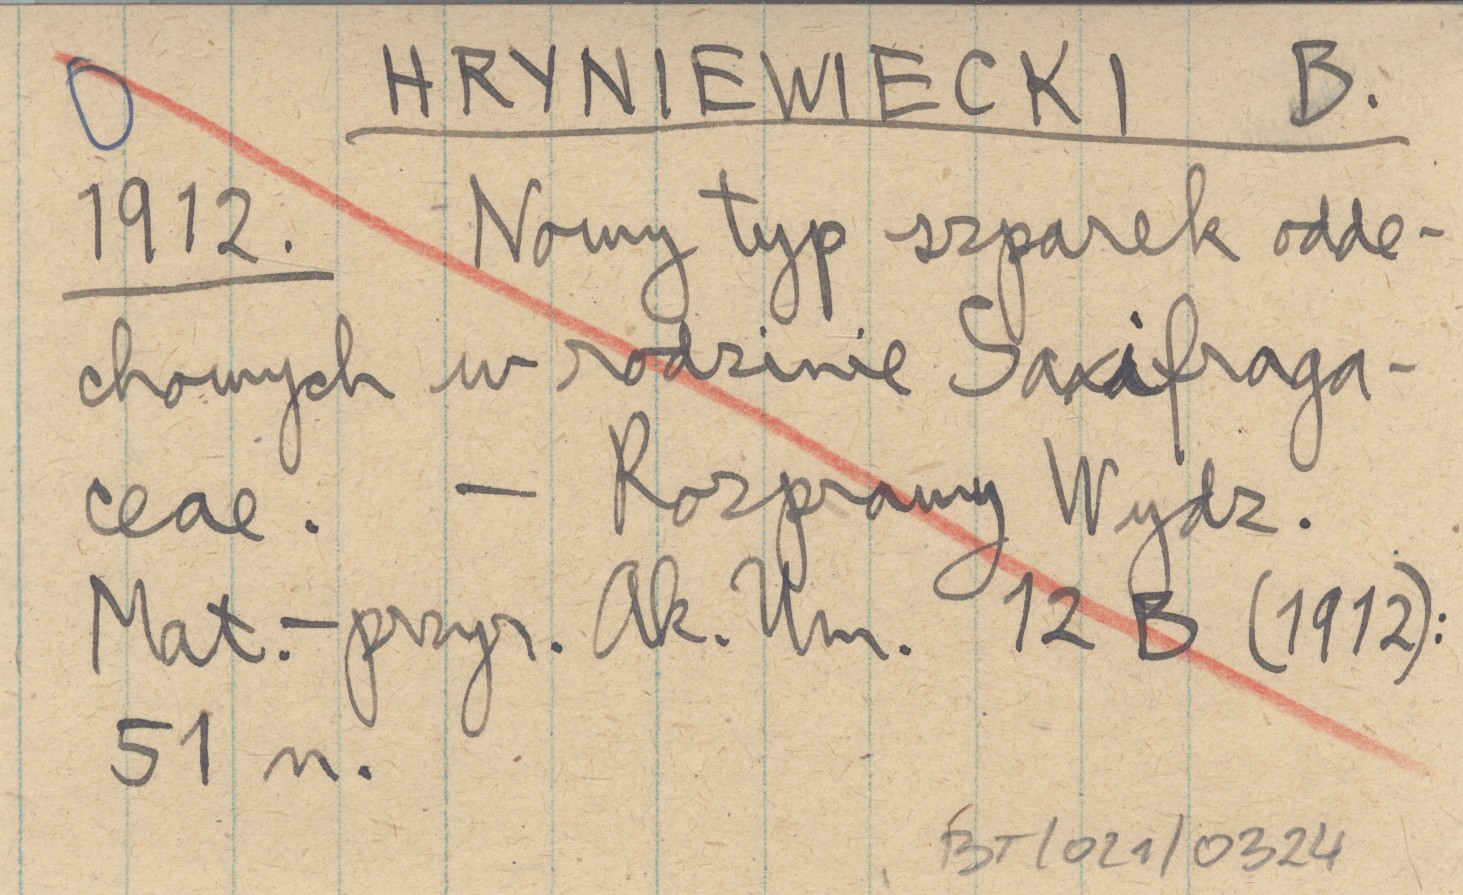 HRYNIEWIECKI B.
1912. Nowy typ szparek odde-
chowych w rodzinie Saxifraga-
ceae. — Rozprawy Wydz.
Mat.-przyr. Ak. Um. 12 B (1912):
51 n.
BT/021/0324